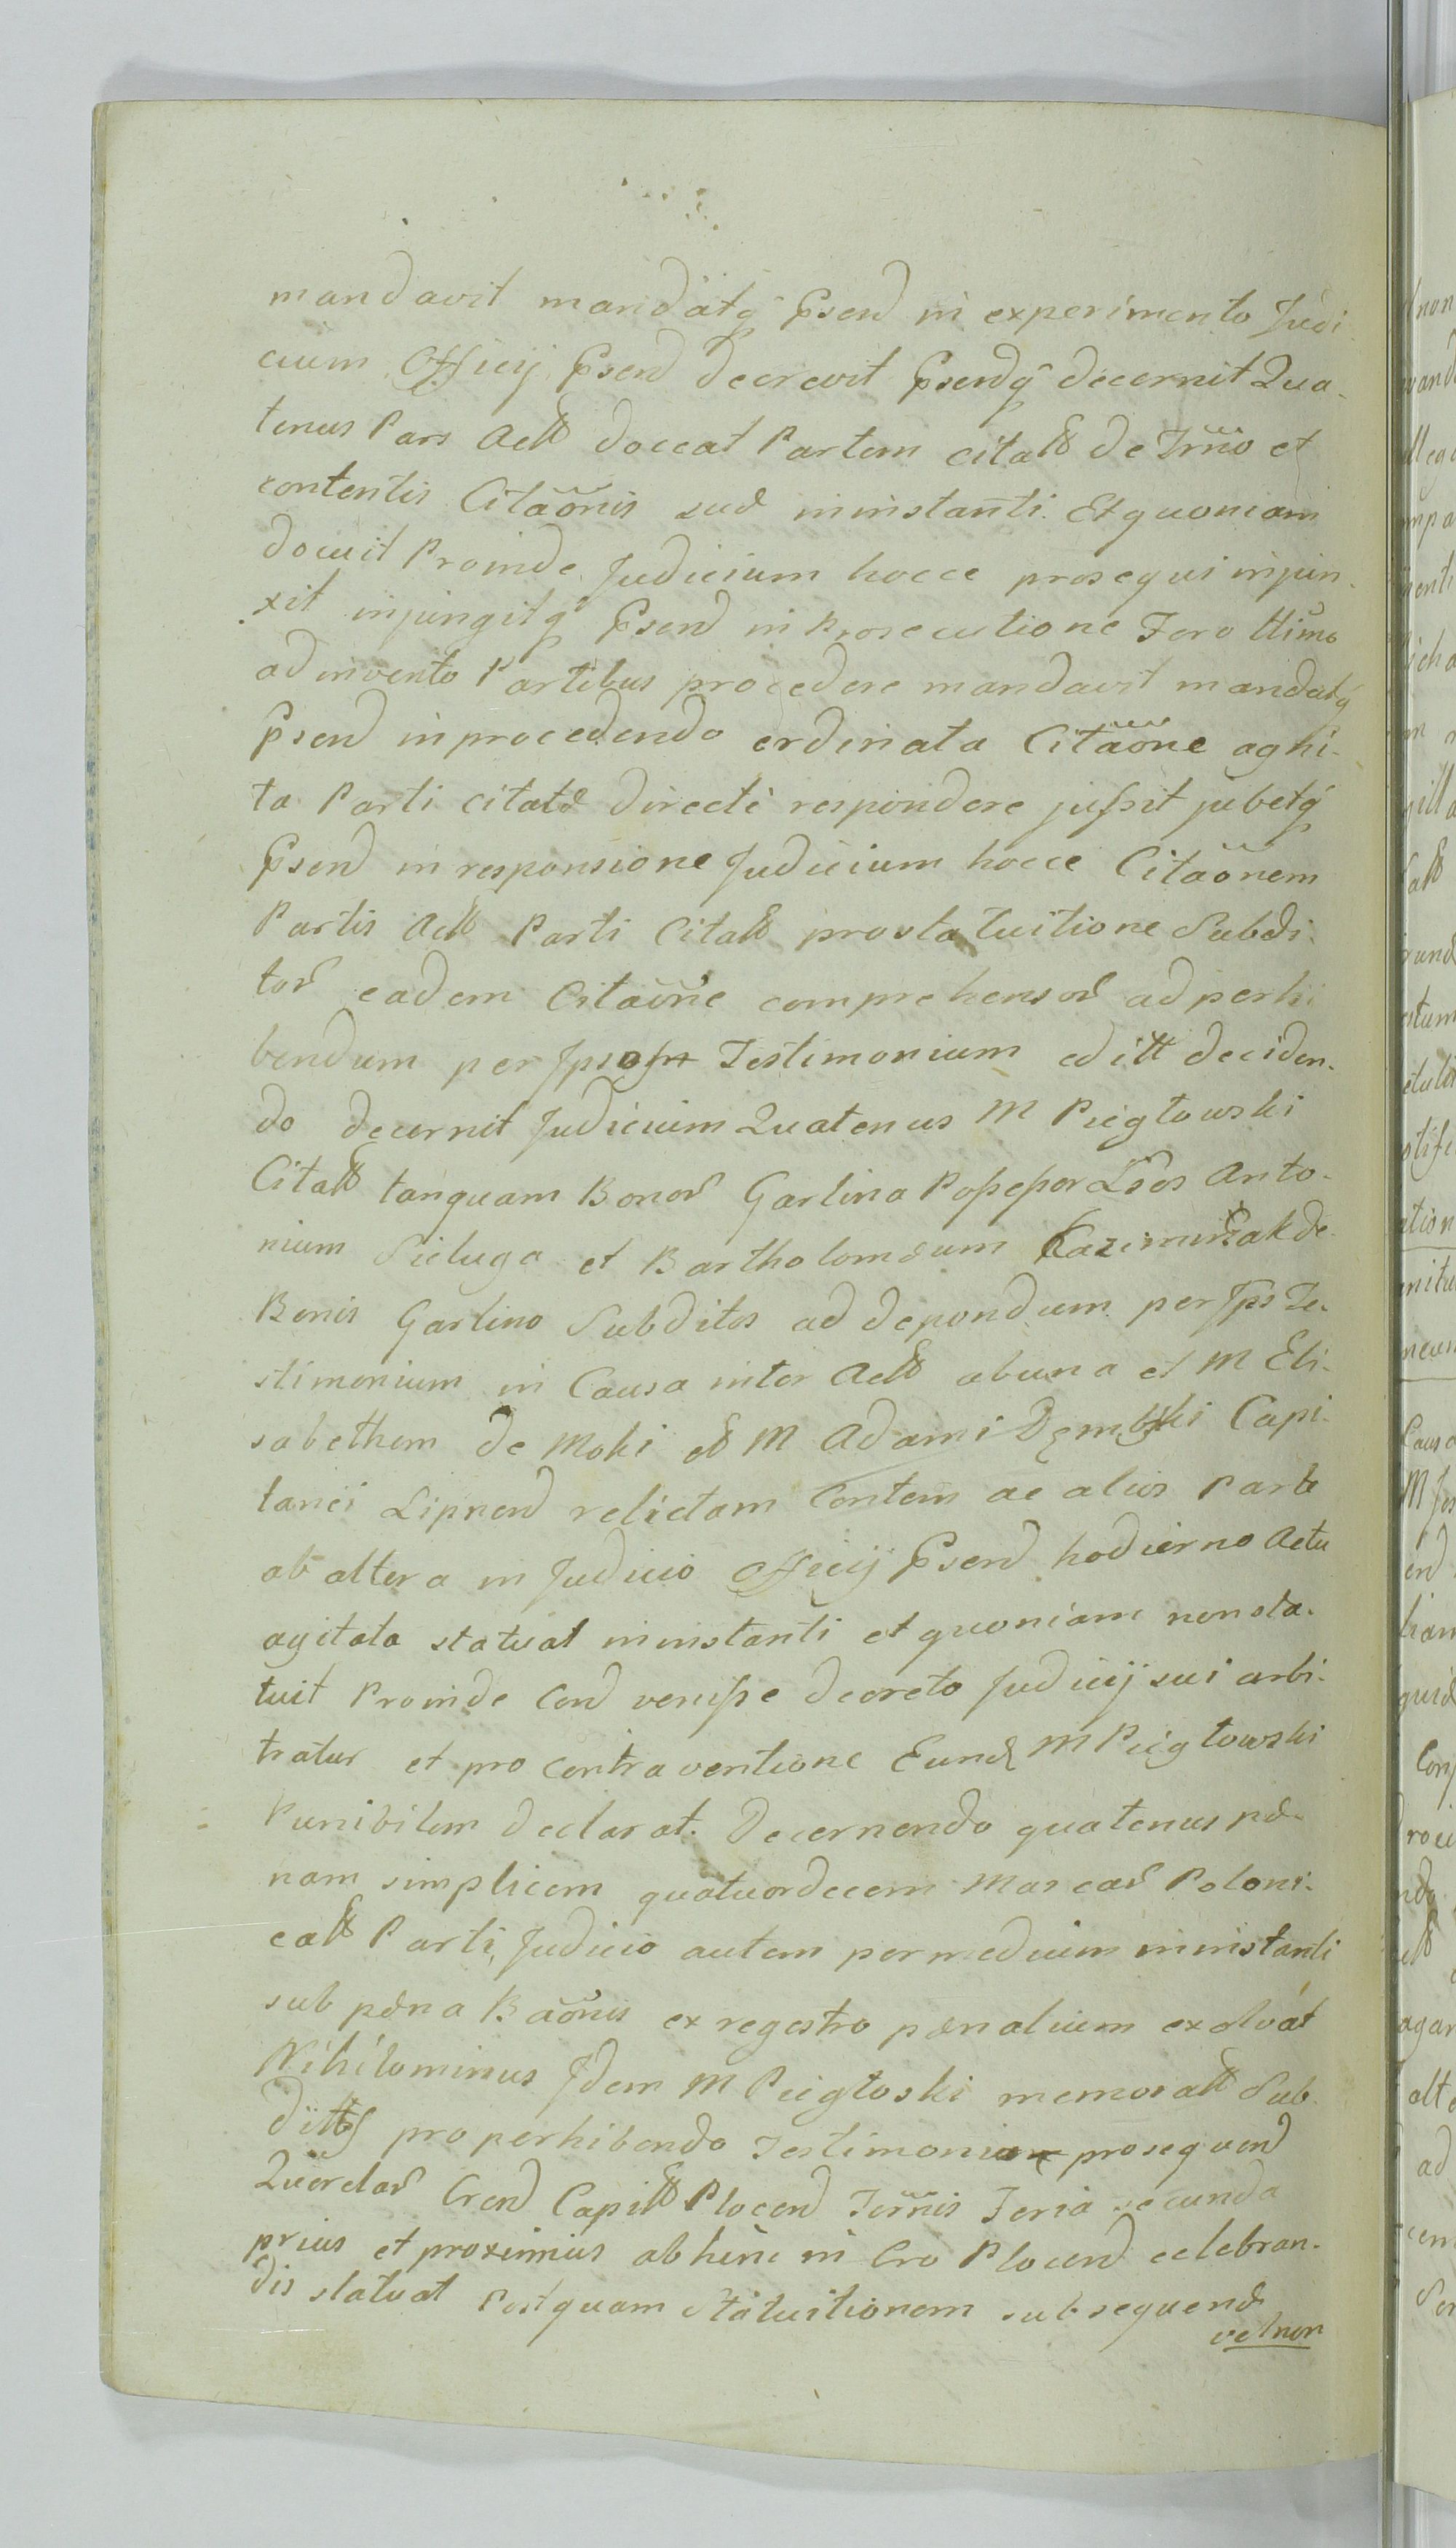 mandavit mandatq Psend in experimento Judi
cium Officij Psend decrevit Psendq decernit Qua-
tenus Pars Actt doceat Partem citatt de Trno et
contentis Citaonis suæ ininstanti. Et quoniam
docuit Proinde Judicium hocce prosequi injun-
xit injungitq Psend in Prosecutione Foro ttimo
adinvento Partibus procedere mandavit mandatq
Psend inprocedendo ordinata Citaone agni-
ta Parti citatæ directe respondere jussit jubetq
Psend in responsione Judicium hocce Citaonem
Partis Actt Parti Citatt prostatuitione Subdi-
tor eadem Citaone comprehensor ad perhi
bendum per Ipsos Testimonium editt deciden-
do decernit Judicium Quatenus M Piegłowski
Citatt tanquam Bonor Garlino Possessor Lsos Anto-
nium Sieluga et Bartholomæum Kazimirczak de
Bonis Garlino Subditos ad depondum per Ips Te-
stimonium in Causa inter Actt abuna et M Eli-
sabetham de Moki ett M Adami Dembski Capi-
tanei Lipnend relictam Contem ac alios Parte
ab altera in Judicio Officij Psend hodierno Actu
agitata statuat ininstanti et quoniam nonsta-
tuit Proinde Cond venisse decreto Judicij sui arbi-
tratur et pro contraventione Eund M Piegłowski
Punibilem declarat. Decernendo quatenus pæ-
nam simplicem quatuordecem Marcar Poloni-
catt Parti, Judicio autem permedium ininstanti
sub pæna Baonis ex regestro pænalium exolvat
Nihilominus Idem M Piegłoski memoratt Sub-
ditts pro perhibendo Testimonio prosequend
Querelar Crend Capitt Plocend Termis Feria secunda
prius et proximius abhinc in Cro Plocend celebran-
dis statuat Postquam Statuitionem subsequend
vel non